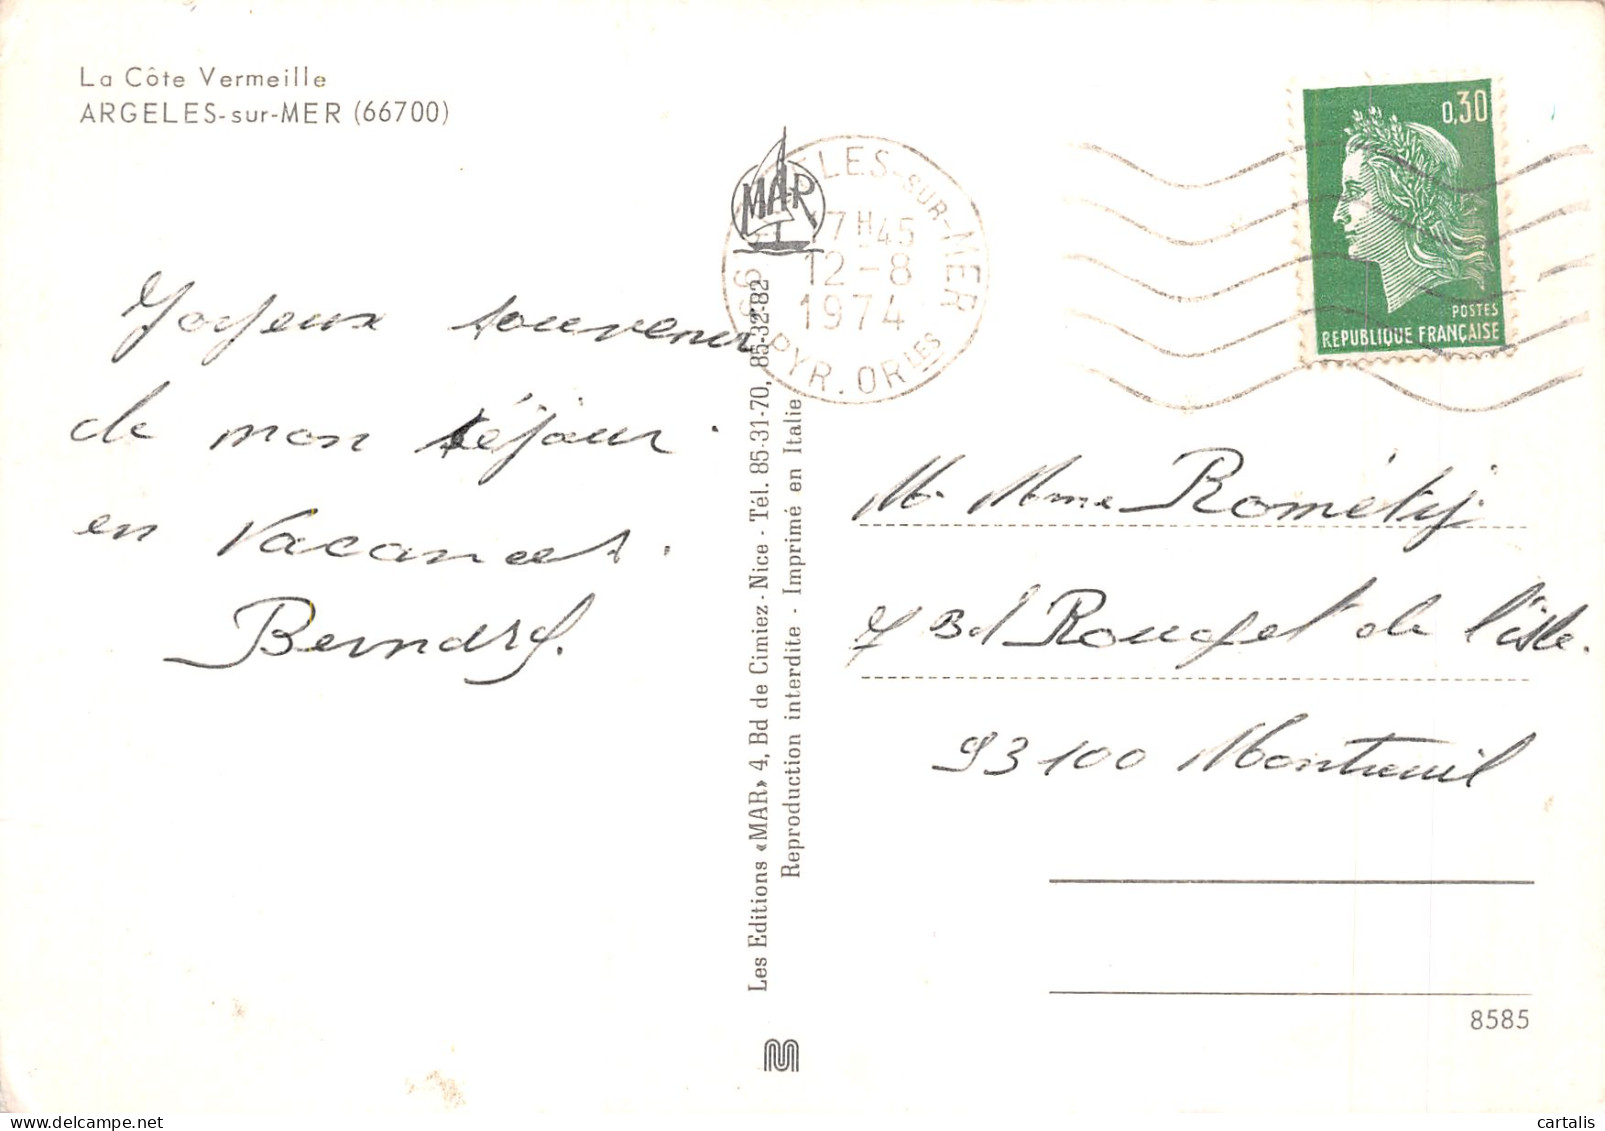 La Côte Vermeille
ARGELES-sur-MER (66700)
Joyeux souvenir
de mon séjour
en Vacances.
MAR
Les Editions «MAR» 4, Bd de Cimiez - Nice - Tél. 85-31-70, 85-32-82
Reproduction interdite - Imprimé en Italie
LES-SUR-MER
7H45
12-8
1974
PYR. ORLES
0,30
POSTES
REPUBLIQUE FRANÇAISE
M. Mme
7 Bd Rouget de l'isle.
93100 Montreuil
8585
cartalis